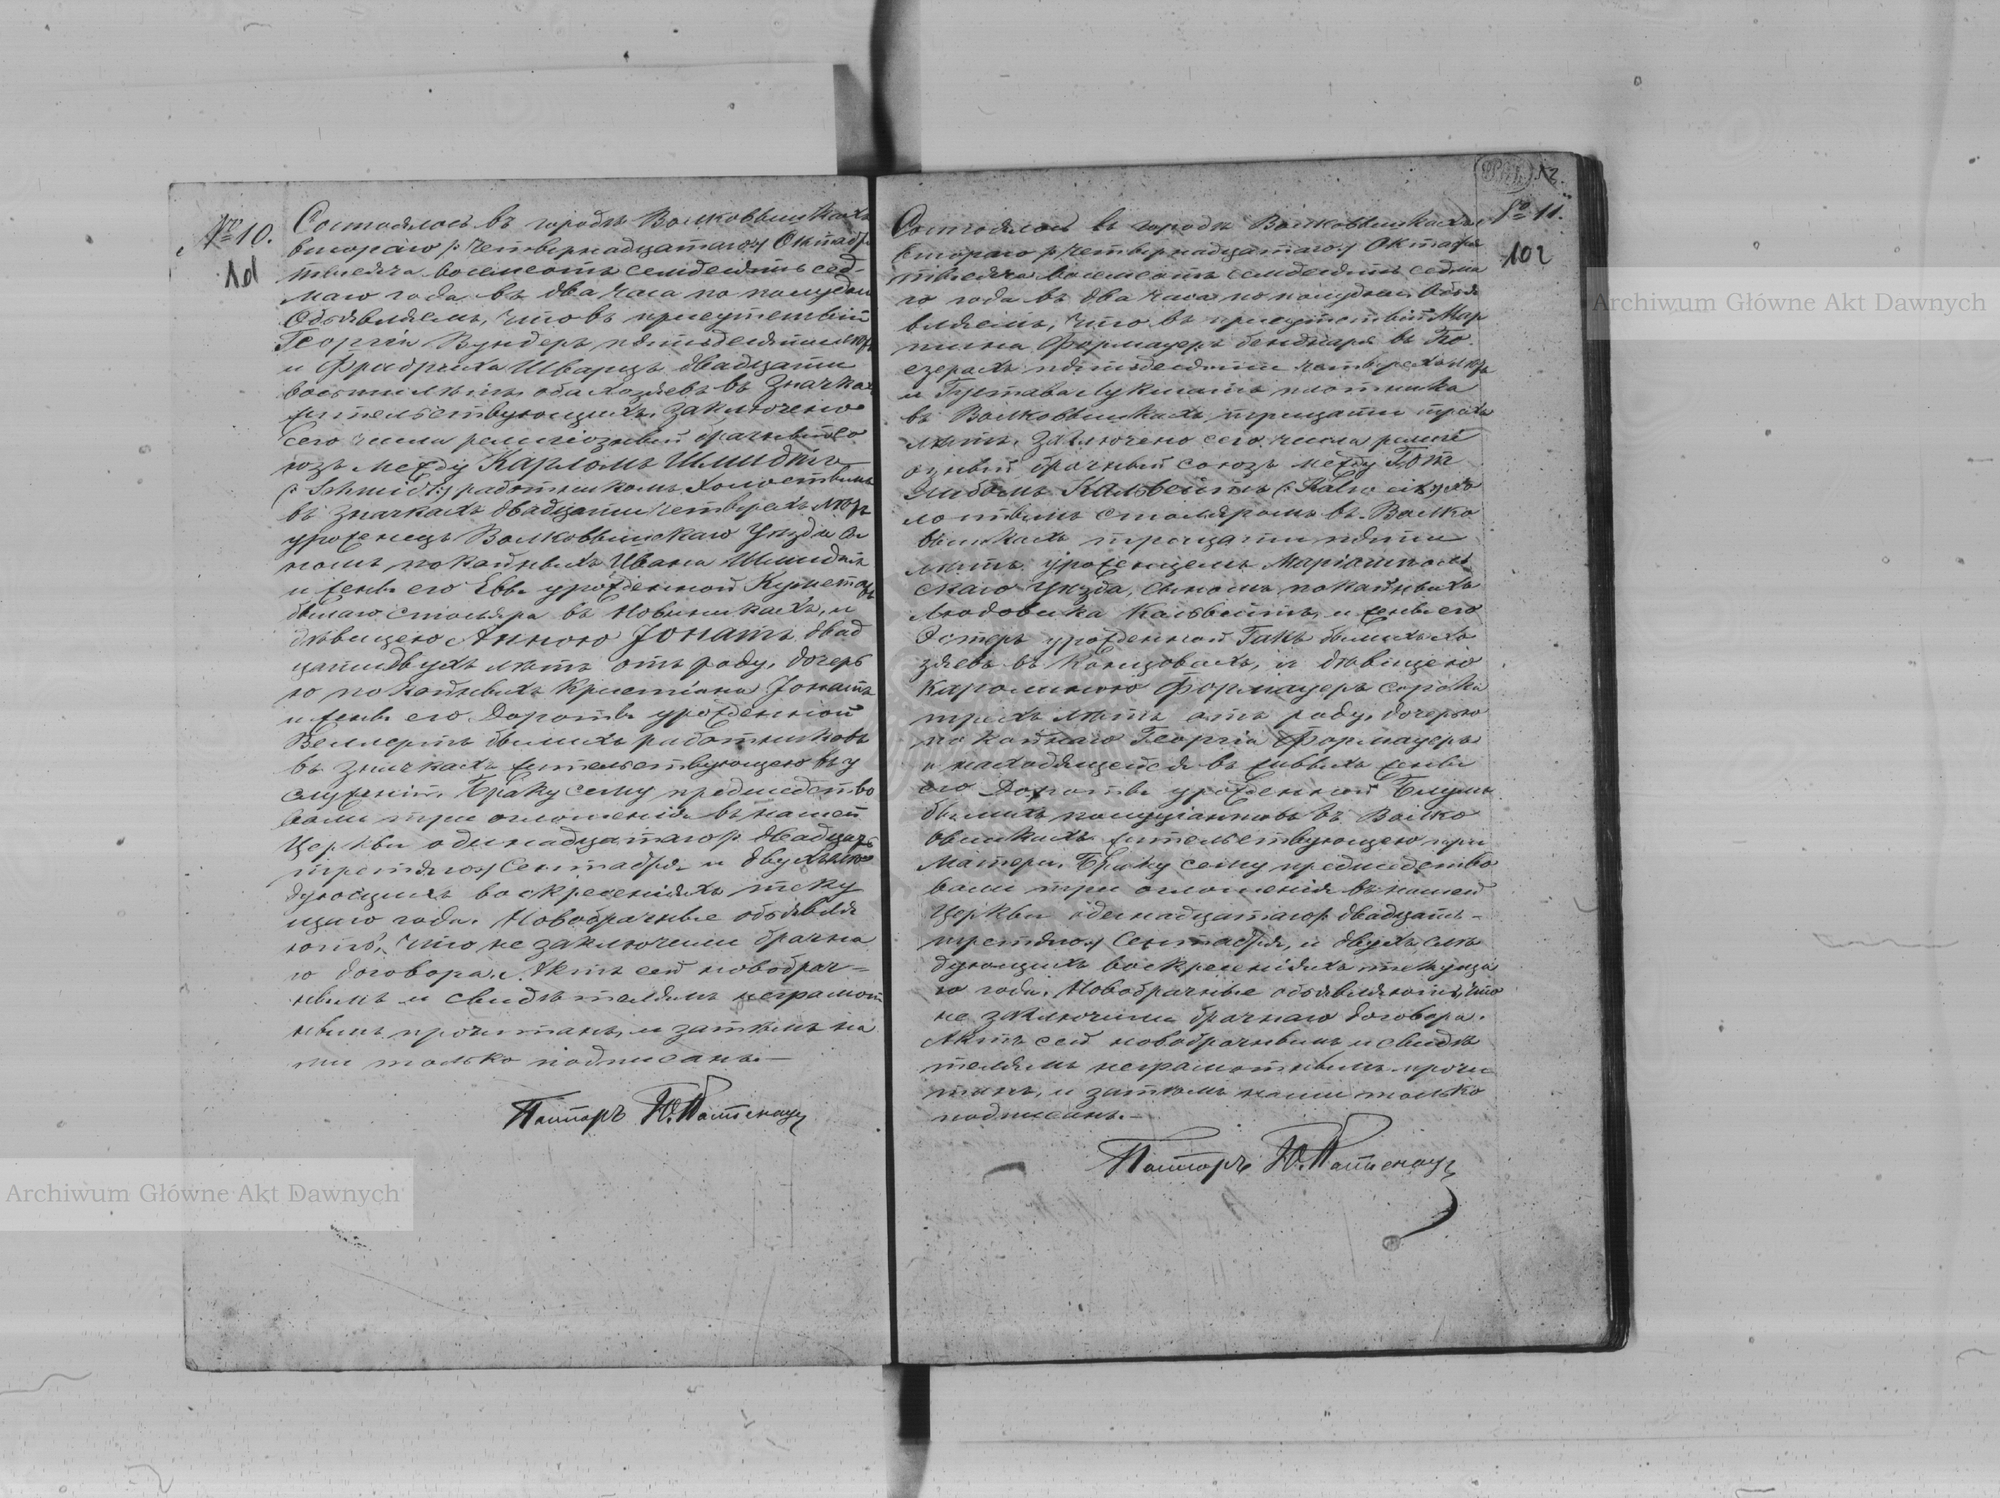 № 10.
1d
Состоялось въ городѣ Волковышкахъ
втораго /: четырнадцатаго :/ Октября
тысяча восемьсотъ семьдесятъ седь-
маго года въ два часа по полудни
Объявляемъ, что въ присутствіи
Георгія Вундеръ пятидесяти
и Фридриха Шварцъ двадцати
восьми лѣтъ, оба хозяевъ въ Значкахъ
жительствующихъ, заключено
сего числа религіозный брачный со
юзъ между Карломъ Шмидтъ
/: Schmidt :/ работникомъ, холостымъ
въ Значкахъ двадцати четырехъ лѣтъ
уроженецъ Волковышскаго Уѣзда сы
номъ покойныхъ Ивана Шмидтъ
и жены его Евы урожденной
бывшаго столяра въ Новиникахъ, и
дѣвицею Анною Јонатъ двад
цати двухъ лѣтъ отъ роду, дочерь
ю покойныхъ Христіана Јонатъ
и жены его Доротъ урожденной
Веллертъ бывшихъ работниковъ
въ Значкахъ жительствующею въ у
служеніи. Браку сему предшество
вали три оглашенія въ нашей
Церкви одинадцатаго /: двадцать
третьяго :/ Сентября и двухъ слѣ
дующихъ воскресеніяхъ теку
щаго года. Новобрачные объявля
ютъ, что не заключили брачна
го договора. Актъ сей новобрач=
нымъ и свидѣтелямъ неграмот
нымъ прочитанъ, и затѣмъ на
ми только подписанъ.—
Пасторъ Ю.
12.
№ 11.
102
Состоялось въ городѣ Волковышкахъ
втораго /: четырнадцатаго :/ Октября
тысяча восемьсотъ семьдесятъ седьма
го года въ два часа по полудни. Объя
вляемъ, что въ присутствіи Мар
тина Формауеръ бондаря въ По-
езерахъ пятидесяти четырехъ лѣтъ
и Густава Лукшатъ плотника
въ Волковышкахъ тридцати трехъ
лѣтъ, заключено сего числа религі
озный брачный союзъ между Гот
либомъ Кальвейтъ /: Kalweit :/ хо
лостымъ столяромъ въ Волко
вышкахъ тридцати пяти
лѣтъ, уроженцемъ Маріамполь
скаго Уѣзда, сыномъ покойныхъ
Людовика Кальвейтъ, и жены его
Эстеръ урожденной Гакъ бывшихъ хо
зяевъ въ, и дѣвицею
Каролиною Формауеръ сорока
трехъ лѣтъ отъ роду, дочерью
покойнаго Георгія Формауеръ
и находящейся въ живыхъ жены
его Доротъ урожденной Блумъ
бывшихъ въ Волко
вышкахъ жительствующею при
Матери. Браку сему предшество
вали три оглашенія въ нашей
Церкви одинадцатаго /: двадцать-
третьяго :/ Сентября, и двухъ слѣ
дующихъ воскресеніяхъ текуща
го года. Новобрачные объявляютъ, что
не заключили брачнаго договора.
Актъ сей новобрачнымъ и свидѣ
телямъ неграмотнымъ прочи
танъ, и затѣмъ нами только
подписанъ.—
Пасторъ Ю.
Archiwum Główne Akt Dawnych
Archiwum Główne Akt Dawnych